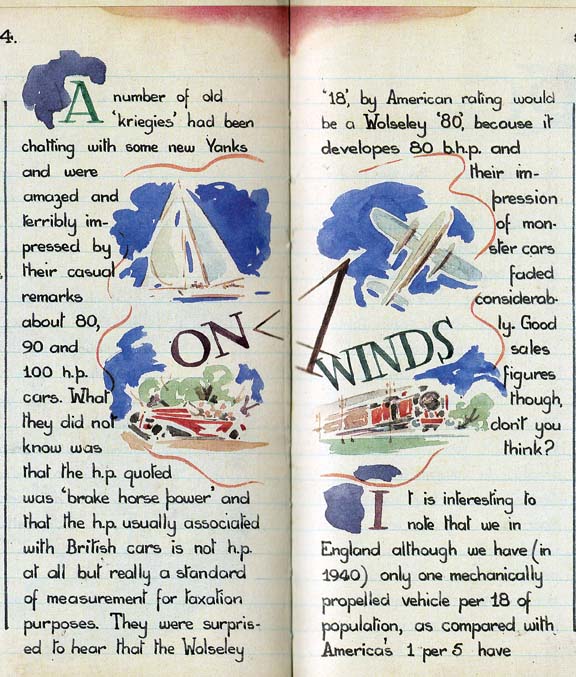 4.
A number of old
'kriegies' had been
chatting with some new Yanks
and were
amazed and
terribly im-
pressed by
their casual
remarks
about 80,
90 and
100 h.p.
cars. What
they did not
know was
that the h.p. quoted
was 'brake horse power' and
that the h.p. usually associated
with British cars is not h.p.
at all but really a standard
of measurement for taxation
purposes. They were surpris-
ed to hear that the Wolseley
ON 4 WINDS
'18', by American rating would
be a Wolseley '80', because it
developes 80 b.h.p. and
their im-
pression
of mon-
ster cars
faded
considerab-
ly. Good
sales
figures
though,
don't you
think?
It is interesting to
note that we in
England although we have (in
1940) only one mechanically
propelled vehicle per 18 of
population, as compared with
America's 1 per 5 have